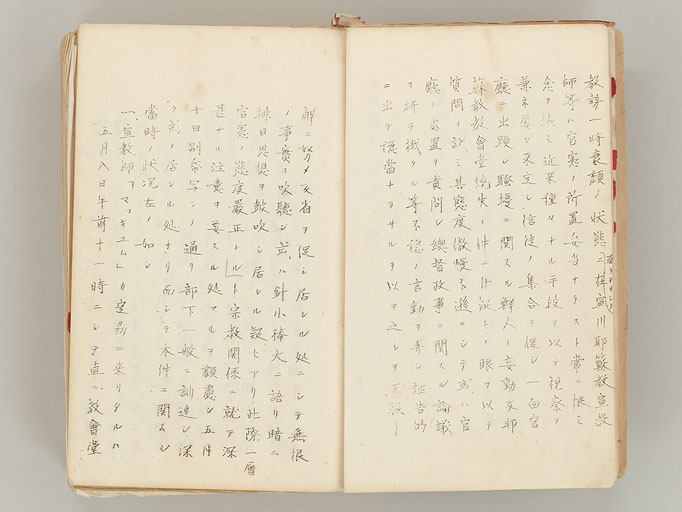 教諄一時衰頽ノ状態ニ梓寓川耶蘇教宣教
師等ハ官憲ノ所置妥当ナラスト常ニ恨ミ
念ヲ挟ミ近来種々ナル手段ヲ以テ視察ヲ
兼ネ屡々来定シ信徒ノ集合ヲ促シ一面官
廳ニ出頭シ騒擾ニ関スル鮮人ノ妄動及耶
蘇教教會堂焼失ノ件ニ付疑ヒノ眼ヲ以テ
質問ヲ試ミ其態度傲慢不遜ニシテ或ハ官
廳ノ処置ヲ責問シ総督政事ニ関スル論議
ヲ持チ等不穏ノ言動ヲ弄シ誣告的
ニ出テ穏當ナラサルヲ以テ之レヲ
解ニ努メ反省ヲ促シ居レル処ニシテ無根
ノ事實ヲ吹聴シ或ハ針小棒大ニ語リ暗ニ
排日思想ヲ鼓吹シ居レル疑ヒアリ此際一層
官憲ノ態度嚴正ナルト宗教関係ニ就テ深
甚ナル注意ヲ要スル処アルヲ顧慮シ五月
十日別帋写シノ通リ部下一般ニ訓達シ深
ク戒ノ居レル処ナリ而シテ本件ニ関スル
當時ノ状況左ノ如シ
一、宣教師マッキユムレカ定州ニ来リタルハ
五月八日午前十一時ニシテ直ニ教會堂